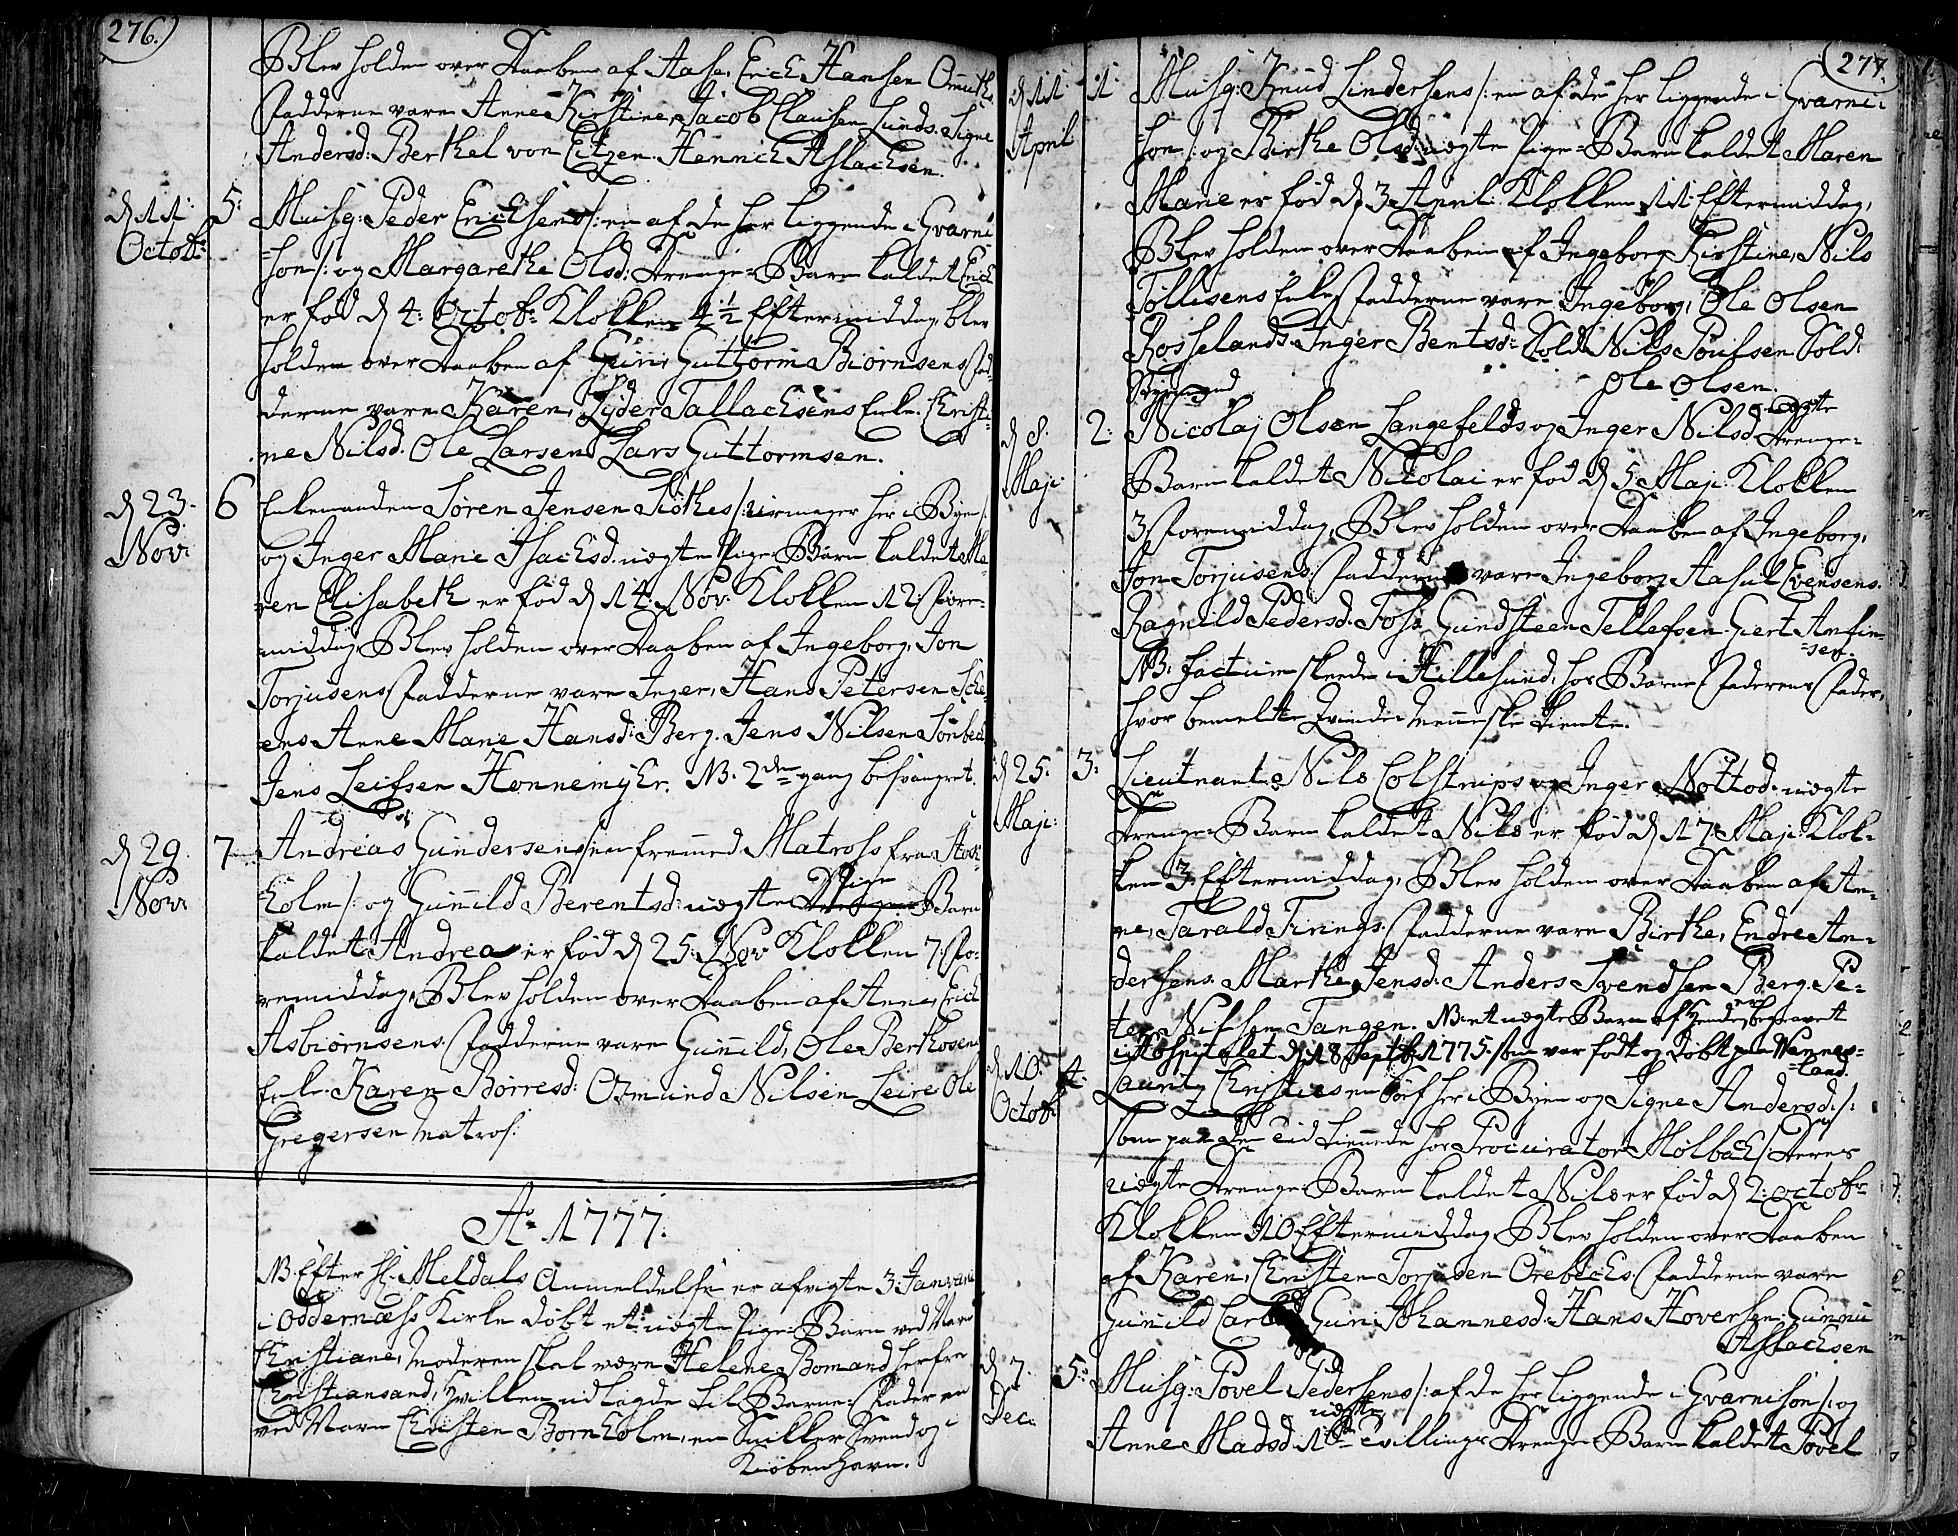 276.)
Blev holden over Daaben af Aase, Erich Hansen
Fadderne vare Anne Kirstine, Jacob Clausen Lunds. Signe
Andersd: Berthel von Eitzen. Hennich Aslachsen.
d 11: Octob: 5: Musq: Peder Erichsens /: en af de her liggende i Gvarni
=son /: og Margarethe Olsd: Drenge=Barn kaldet Erich
er fød d 4: Octob: Klokken 4½ Eftermiddag, blev
holden over Daaben af Guttorm Biørnsens Fad-
derne vare Karen, Tallachsens Enke. Christi-
ne Nilsd. Ole Larsen Lars Guttormsen.
d 23. Nov: 6 Enkemanden Søren Jensen /: her i Byen /:
og Inger Marie Isachsd. uægte Pige=Barn kaldet Ma-
ren Elisabeth er fød d 14: Nov: Klokken 12: Fore-
middag, Blev holden over Daaben af Ingeborg, Jon
Torjusens Fadderne vare Inger, Hans Petersen
ens Anne Marie Hansd: Berg. Jens Nilsen
Jens Leifsen Honnemyhr. NB. 2den gang besvangret.
d 29. Nov: 7 Andreas Gundersens /: en fremmed Matross fra Stok
holm /: og Gunnild Berentsd: uægte Pige Barn
kaldet Andrea er fød d 25: Nov Klokken 7: Fo-
remiddag, Blev holden over Daaben af Anne, Erich
Asbiørnsens. Fadderne vare Gunnild, Ole Berthosens
Enke. Karen Børresd: Osmund Nilsen Leire Ole
Gregersen Matros:
Ao 1777.
NB. Efter Hr: Meldals Anmeldelse er afvigte 3: Januarii
i Oddernæss Kirke døbt et uægte Pige=Barn ved Navn
Christiane, Moderen skal være Helene Bomand herfra
Christiansand, hvilken udlagde til Barne=Fader en
ved Navn Christen Bornholm, en Svend og i
Kiøbenhavn.
277.
d 11: April 1: Musq: Knud Lindersens /: en af de her liggende i Gvarni=
=son /: og Birthe Olsd: uægte Pige=Barn kaldet Maren
Marie er fød d 3: April: Klokken 11: Eftermiddag,
Blev holden over Daaben af Ingeborg Kirstine, Nils
Tollisens Enke, Fadderne vare Ingeborg, Ole Olsen
Rosselands Inger Bentsd: Sold: Nils Poulsen Sold:
Ole Olsen.
d 8. Maji: 2: Nicolaj Olsen Langefelds og Inger Nilsd. uægte Drenge=
=Barn kaldet Nicolai er fød d 5. Maji: Klokken
3 Foremiddag, Blev holden over Daaben af Ingeborg,
Jon Torjusens: Fadderne vare Ingeborg Aasul Evensens.
Ragnild Pedersd. Gundsteen Tellefsen. Giert Anfin-
=sen.
NB: factum skeede i Hillesund, hos Barne Faderens Fader,
hvor bemelte Qvinde Menneske tiente.
d 25: Maji: 3: Lieutnant Nils Colstrups og Inger uægte
Drenge=Barn kaldet Nils er fød d 17 Maji: Klok-
ken 3: Eftermiddag, Blev holden over Daaben af An-
ne, Tarald Fadderne vare Birthe, Endre An-
dersens. Marthe Jensd: Anders Svendsen Berg. Pe-
ter Nilsen Tangen. NB: et uægte Barn af hende, begravet
i Hospitalet d 18 Septb. 1775. som var født og døbt paa Wennes-
=land.
d 10: Octob: 4: Lauritz Christiesen her i Byen og Signe Andersd: /:
som paa den tid tienede hos Procurator Mølbach /: deres
uægte Drenge=Barn kaldet Nils er fød d 2: octobr:
Klokken 10 Eftermiddag, Blev holden over Daaben
af Karen, Christen Torjusen Ørebechs. Fadderne vare
Gunnild Guri Johannesd. Hans Hoversen. Gunnu
Aslachsen
d 7. Dec: 5: Musq: Povel Pedersens /: af de her liggende i Gvarnison /: og
Anne Madsd. uægte Tvillinge Drenge=Barn kaldet Povel